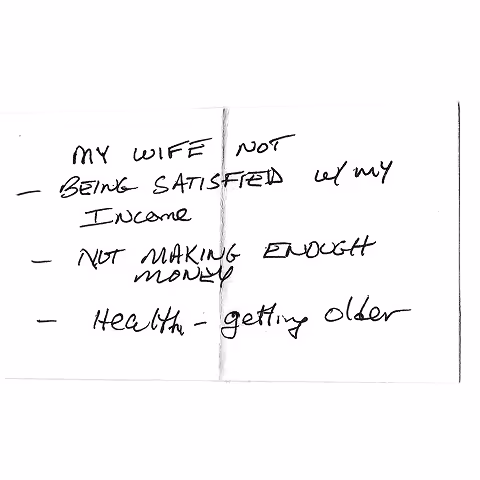 MY WIFE NOT
— BEING SATISFIED w/ MY
INCOME
— NOT MAKING ENOUGH
MONEY
— Health - getting older